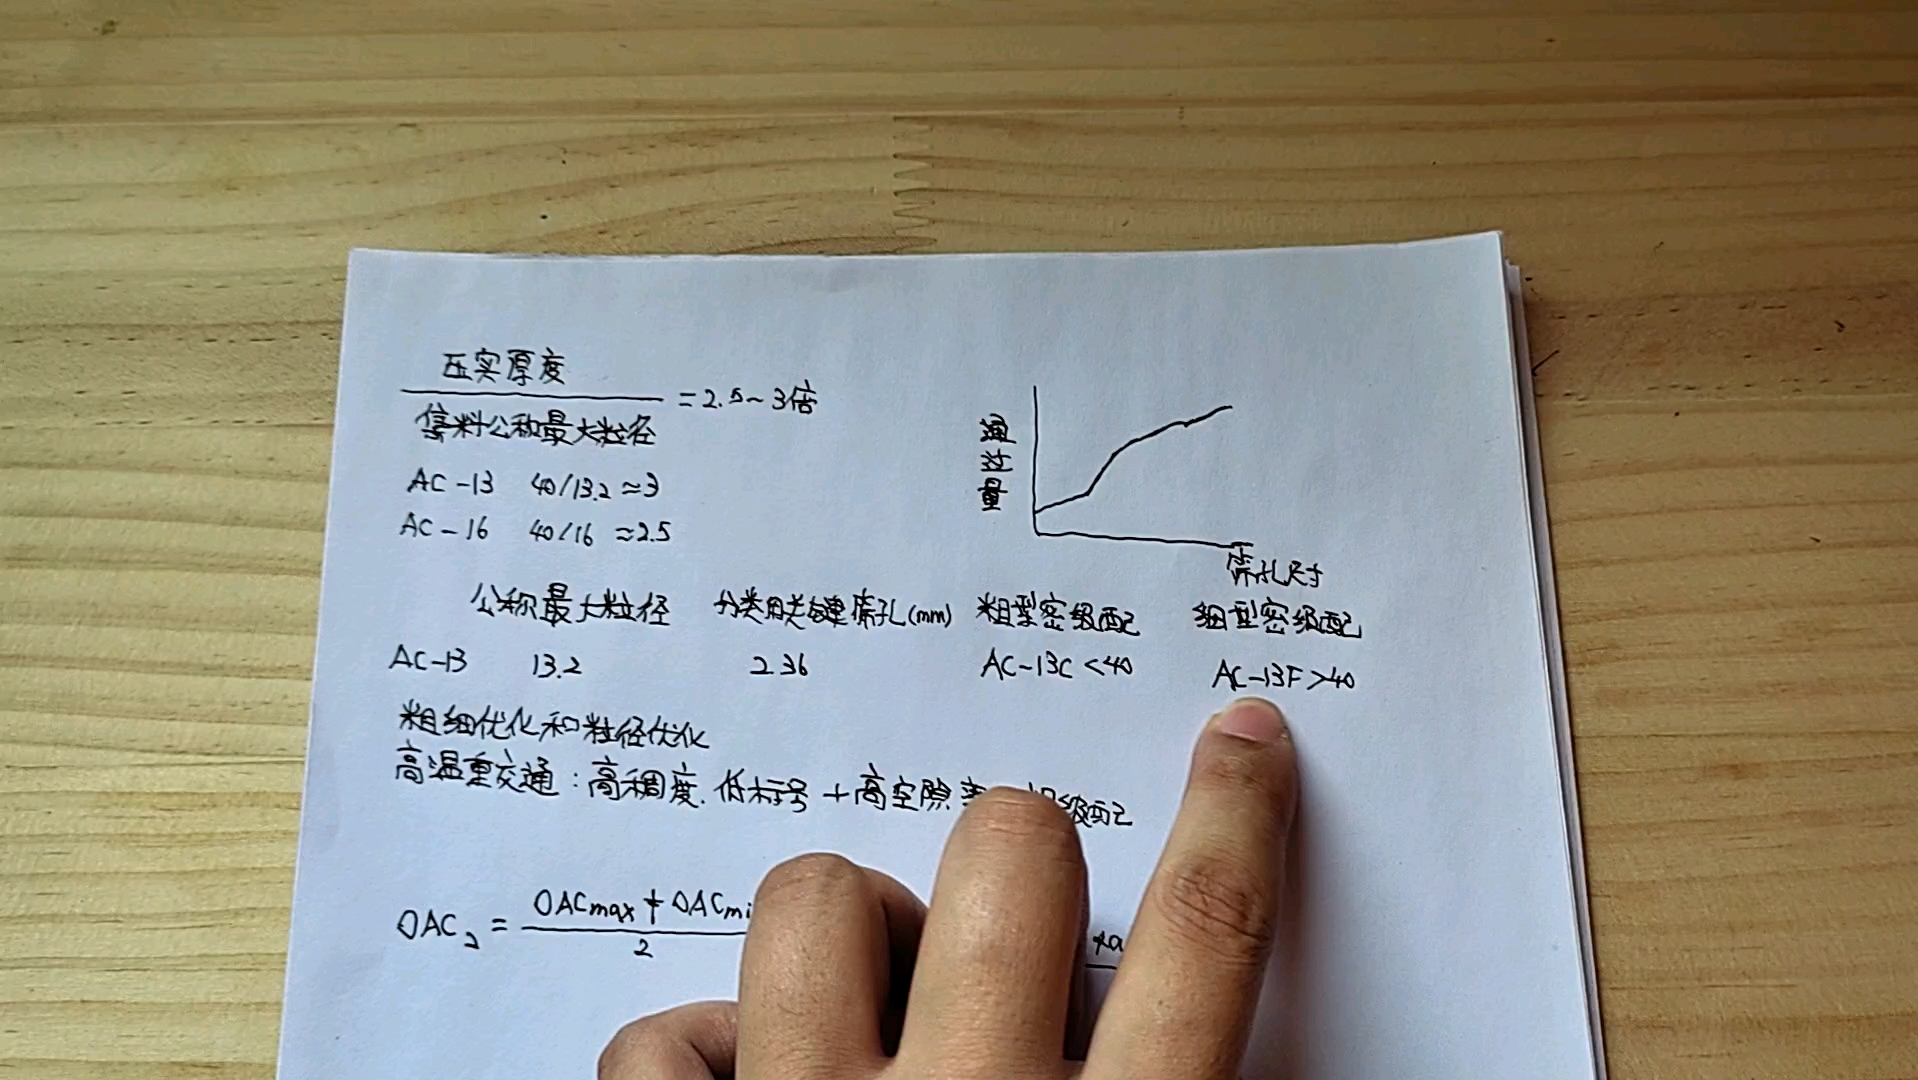 压实厚度
集料公称最大粒径
=2.5~3倍
AC-13 40/13.2≈3
AC-16 40/16≈2.5
通过量
筛孔尺寸
公称最大粒径 分类用关键筛孔(mm) 粗型密级配 细型密级配
AC-13 13.2 2.36 AC-13C<40 AC-13F>40
粗细优化和粒径优化
高温重交通:高稠度.低标号+高空隙 级配
OAC₂=
OACmax+OACmi
2